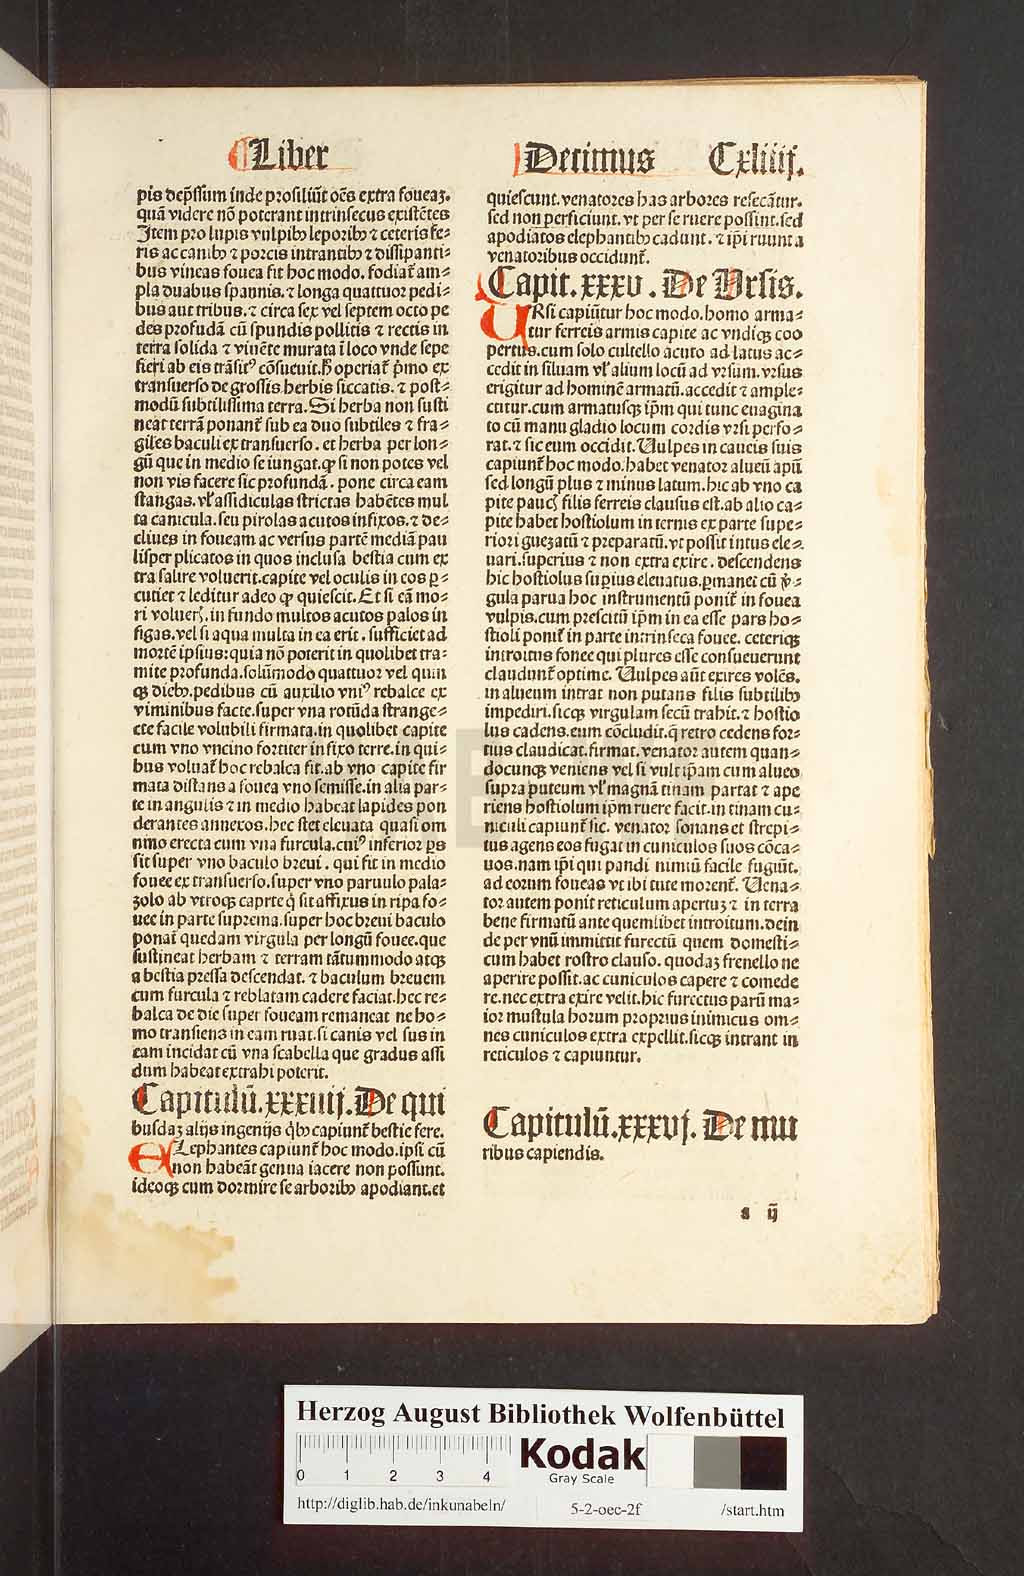 Liber
Decimus Cxliiij.
pis dep̄ssum inde prosiliūt oēs extra foueaʒ.
quā videre nō poterant intrinsecus existētes
Item pro lupis vulpibꝰ leporibꝰ ⁊ ceteris fe⸗
ris ac canibꝰ ⁊ porcis intrantibꝰ ⁊ dissipanti⸗
bus vineas fouea fit hoc modo. fodiat̄ am⸗
pla duabus spannis. ⁊ longa quattuor pedi⸗
bus aut tribus. ⁊ circa sex vel septem octo pe
des profundā cū spundis pollitis ⁊ rectis in
terra solida ⁊ vinēte murata ī loco vnde sepe
fieri ab eis trāsitꝰ cōsueuit. h̄ operiat̄ p̄mo ex
transuerso de grossis herbis siccatis. ⁊ post⸗
modū subtilissima terra. Si herba non susti
neat terrā ponant̄ sub ea duo subtiles ⁊ fra⸗
giles baculi ex transuerso. et herba per lon⸗
gū que in medio se iungat. ꝙ si non potes vel
non vis facere sic profundā. pone circa eam
stangas. vl̄ assidiculas strictas habētes mul
ta canicula. seu pirolas acutos infixos. ⁊ de⸗
cliues in foueam ac versus partē mediā pau
lisper plicatos in quos inclusa bestia cum ex
tra salire voluerit. capite vel oculis in eos ꝑ⸗
cutiet ⁊ leditur adeo ꝙ quiescit. Et si eā mo⸗
ri voluerꝭ. in fundo multos acutos palos in
figas. vel si aqua multa in ea erit. sufficiet ad
mortē ipsius: quia nō poterit in quolibet tra⸗
mite profunda. solūmodo quattuor vel quin
qꝫ diebꝰ. pedibus cū auxilio vniꝰ rebalce ex
viminibus facte. super vna rotūda strange⸗
cte facile volubili firmata. in quolibet capite
cum vno vncino fortiter infixo terre. in qui⸗
bus voluat̄ hoc rebalca fit. ab vno capite fir
mata distans a fouea vno semisse. in alia par⸗
te in angulis ⁊ in medio habeat lapides pon
derantes annexos. hec stet eleuata quasi om
nino erecta cum vna furcula. cuiꝰ inferior ꝑs
sit super vno baculo breui. qui fit in medio
fouee ex transuerso. super vno paruulo pala⸗
zolo ab vtroqꝫ caprte q̇ sit affixus in ripa fo⸗
uee in parte suprema. super hoc breui baculo
ponat̄ quedam virgula per longū fouee. que
sustineat herbam ⁊ terram tātummodo atqꝫ
a bestia pressa descendat. ⁊ baculum breuem
cum furcula ⁊ reblatam cadere faciat. hec re⸗
balca de die super foueam remaneat ne ho⸗
mo transiens in eam ruat. si canis vel sus in
eam incidat cū vna scabella que gradus assi
dum habeat extrahi poterit.
Capitulū. xxxiiij. De qui
busdaʒ alijs ingenijs q̇bꝰ capiunt̄ bestie fere.
ELephantes capiunt̄ hoc modo. ipsi cū
non habeāt genua iacere non possunt.
ideoqꝫ cum dormire se arboribꝰ apodiant. et
quiescunt. venatores has arbores resecātur.
sed non perficiunt. vt per se ruere possint. sed
apodiatos elephantibꝰ cadunt. ⁊ ip̄i ruunt a
venatoribus occidunt̄.
Capit. xxxv. De Vrsis.
URsi capiūtur hoc modo. homo arma⸗
tur ferreis armis capite ac vndiqꝫ coo
pertus. cum solo cultello acuto ad latus ac⸗
cedit in siluam vl̄ alium locū ad vrsum. vrsus
erigitur ad hominē armatū. accedit ⁊ ample⸗
ctitur. cum armatusqꝫ ip̄m qui tunc euagina
to cū manu gladio locum cordis vrsi perfo⸗
rat. ⁊ sic eum occidit. Vulpes in caueis suis
capiunt̄ hoc modo. habet venator alueū apū
sed longū plus ⁊ minus latum. hic ab vno ca
pite paucꝭ filis ferreis clausus est. ab alio ca⸗
pite habet hostiolum in ternis ex parte supe⸗
riori guezatū ⁊ preparatū. vt possit intus ele⸗
uari. superius ⁊ non extra exire. descendens
hic hostiolus supius eleuatus. ꝑmanei cū v̇⸗
gula parua hoc instrumentū ponit̄ in fouea
vulpis. cum prescitū ip̄m in ea esse pars ho⸗
stioli ponit̄ in parte intrinseca fouee. ceteriqꝫ
introitus fonee qui plures esse consueuerunt
claudunt̄ optime. Vulpes aūt exires volēs.
in alueum intrat non putans filis subtilibꝰ
impediri. sicqꝫ virgulam secū trahit. ⁊ hostio
lus cadens. eum cōcludit. q̄ retro cedens for⸗
tius claudicat. firmat. venator autem quan⸗
docunqꝫ veniens vel si vult ip̄am cum alueo
supra puteum vl̄ magnā tinam partat ⁊ ape
riens hostiolum ip̄m ruere facit. in tinam cu⸗
niculi capiunt̄ sic. venator sonans et strepi⸗
tus agens eos fugat in cuniculos suos cōca⸗
uos. nam ip̄i qui pandi nimiū facile fugiūt.
ad eorum foueas vt ibi tute morent̄. Uena⸗
tor autem ponit reticulum apertuʒ ⁊ in terra
bene firmatū ante quemlibet introitum. dein
de per vnū immittit furectū quem domesti⸗
cum habet rostro clauso. quodaʒ frenello ne
aperire possit. ac cuniculos capere ⁊ comede
re. nec extra exire velit. hic furectus parū ma⸗
ior mustula horum proprius inimicus om⸗
nes cuniculos extra expellit. sicqꝫ intrant in
reticulos ⁊ capiuntur.
Capitulū. xxxvj. De mu
ribus capiendis.
s ij
Herzog August Bibliothek Wolfenbüttel
0 1 2 3 4
Kodak
Gray Scale
http://diglib.hab.de/inkunabeln/ 5-2-oec-2f /start.htm